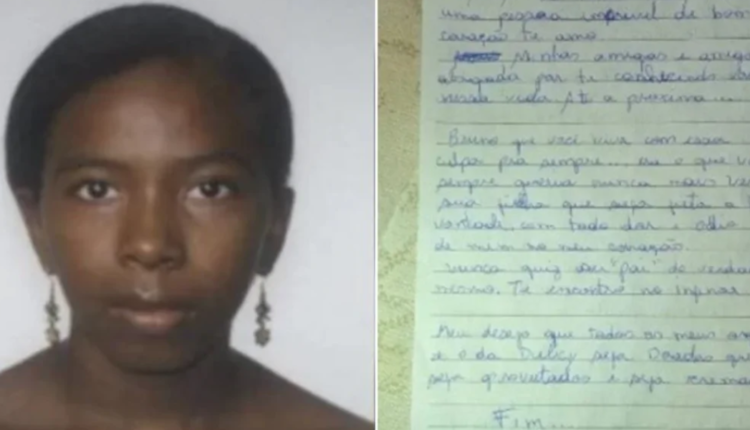 uma pessoa incrivel de bom
coração te amo
Minhas amigas e amigo
obrigada por te conhecido
nessa vida Ate a proxima ...
Bruno que voci viva com essa
culpa pra sempre... era o que v
sempre queria nunca mais ve
sua filha que seja feita a
vontade, com todo dor e odio
de mim no meu coração.
Nunca quiz ser "pai" de verda
mesmo. Te encontro no infer
Meu desejo que todos os meus
e o da seja Doados
seja e seja
Fim...